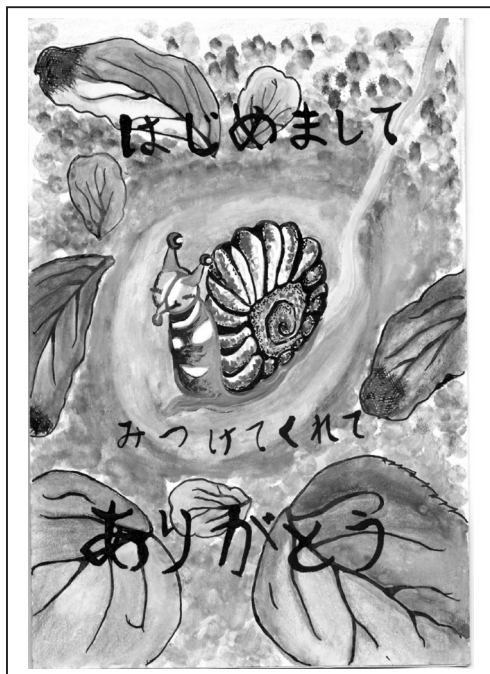 はじめまして
みつけてくれて
ありがとう